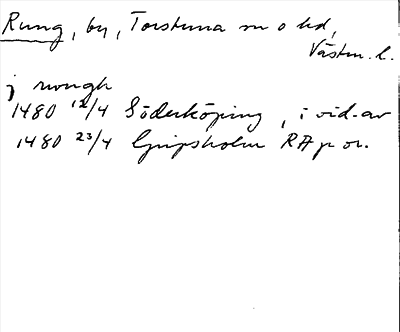 Rung, by, Torstuna sn o hd,
Västm. l.
j rwngh
1480 12/4 Söderköping, i vid. av
1480 23/4 Gripsholm RA p or.